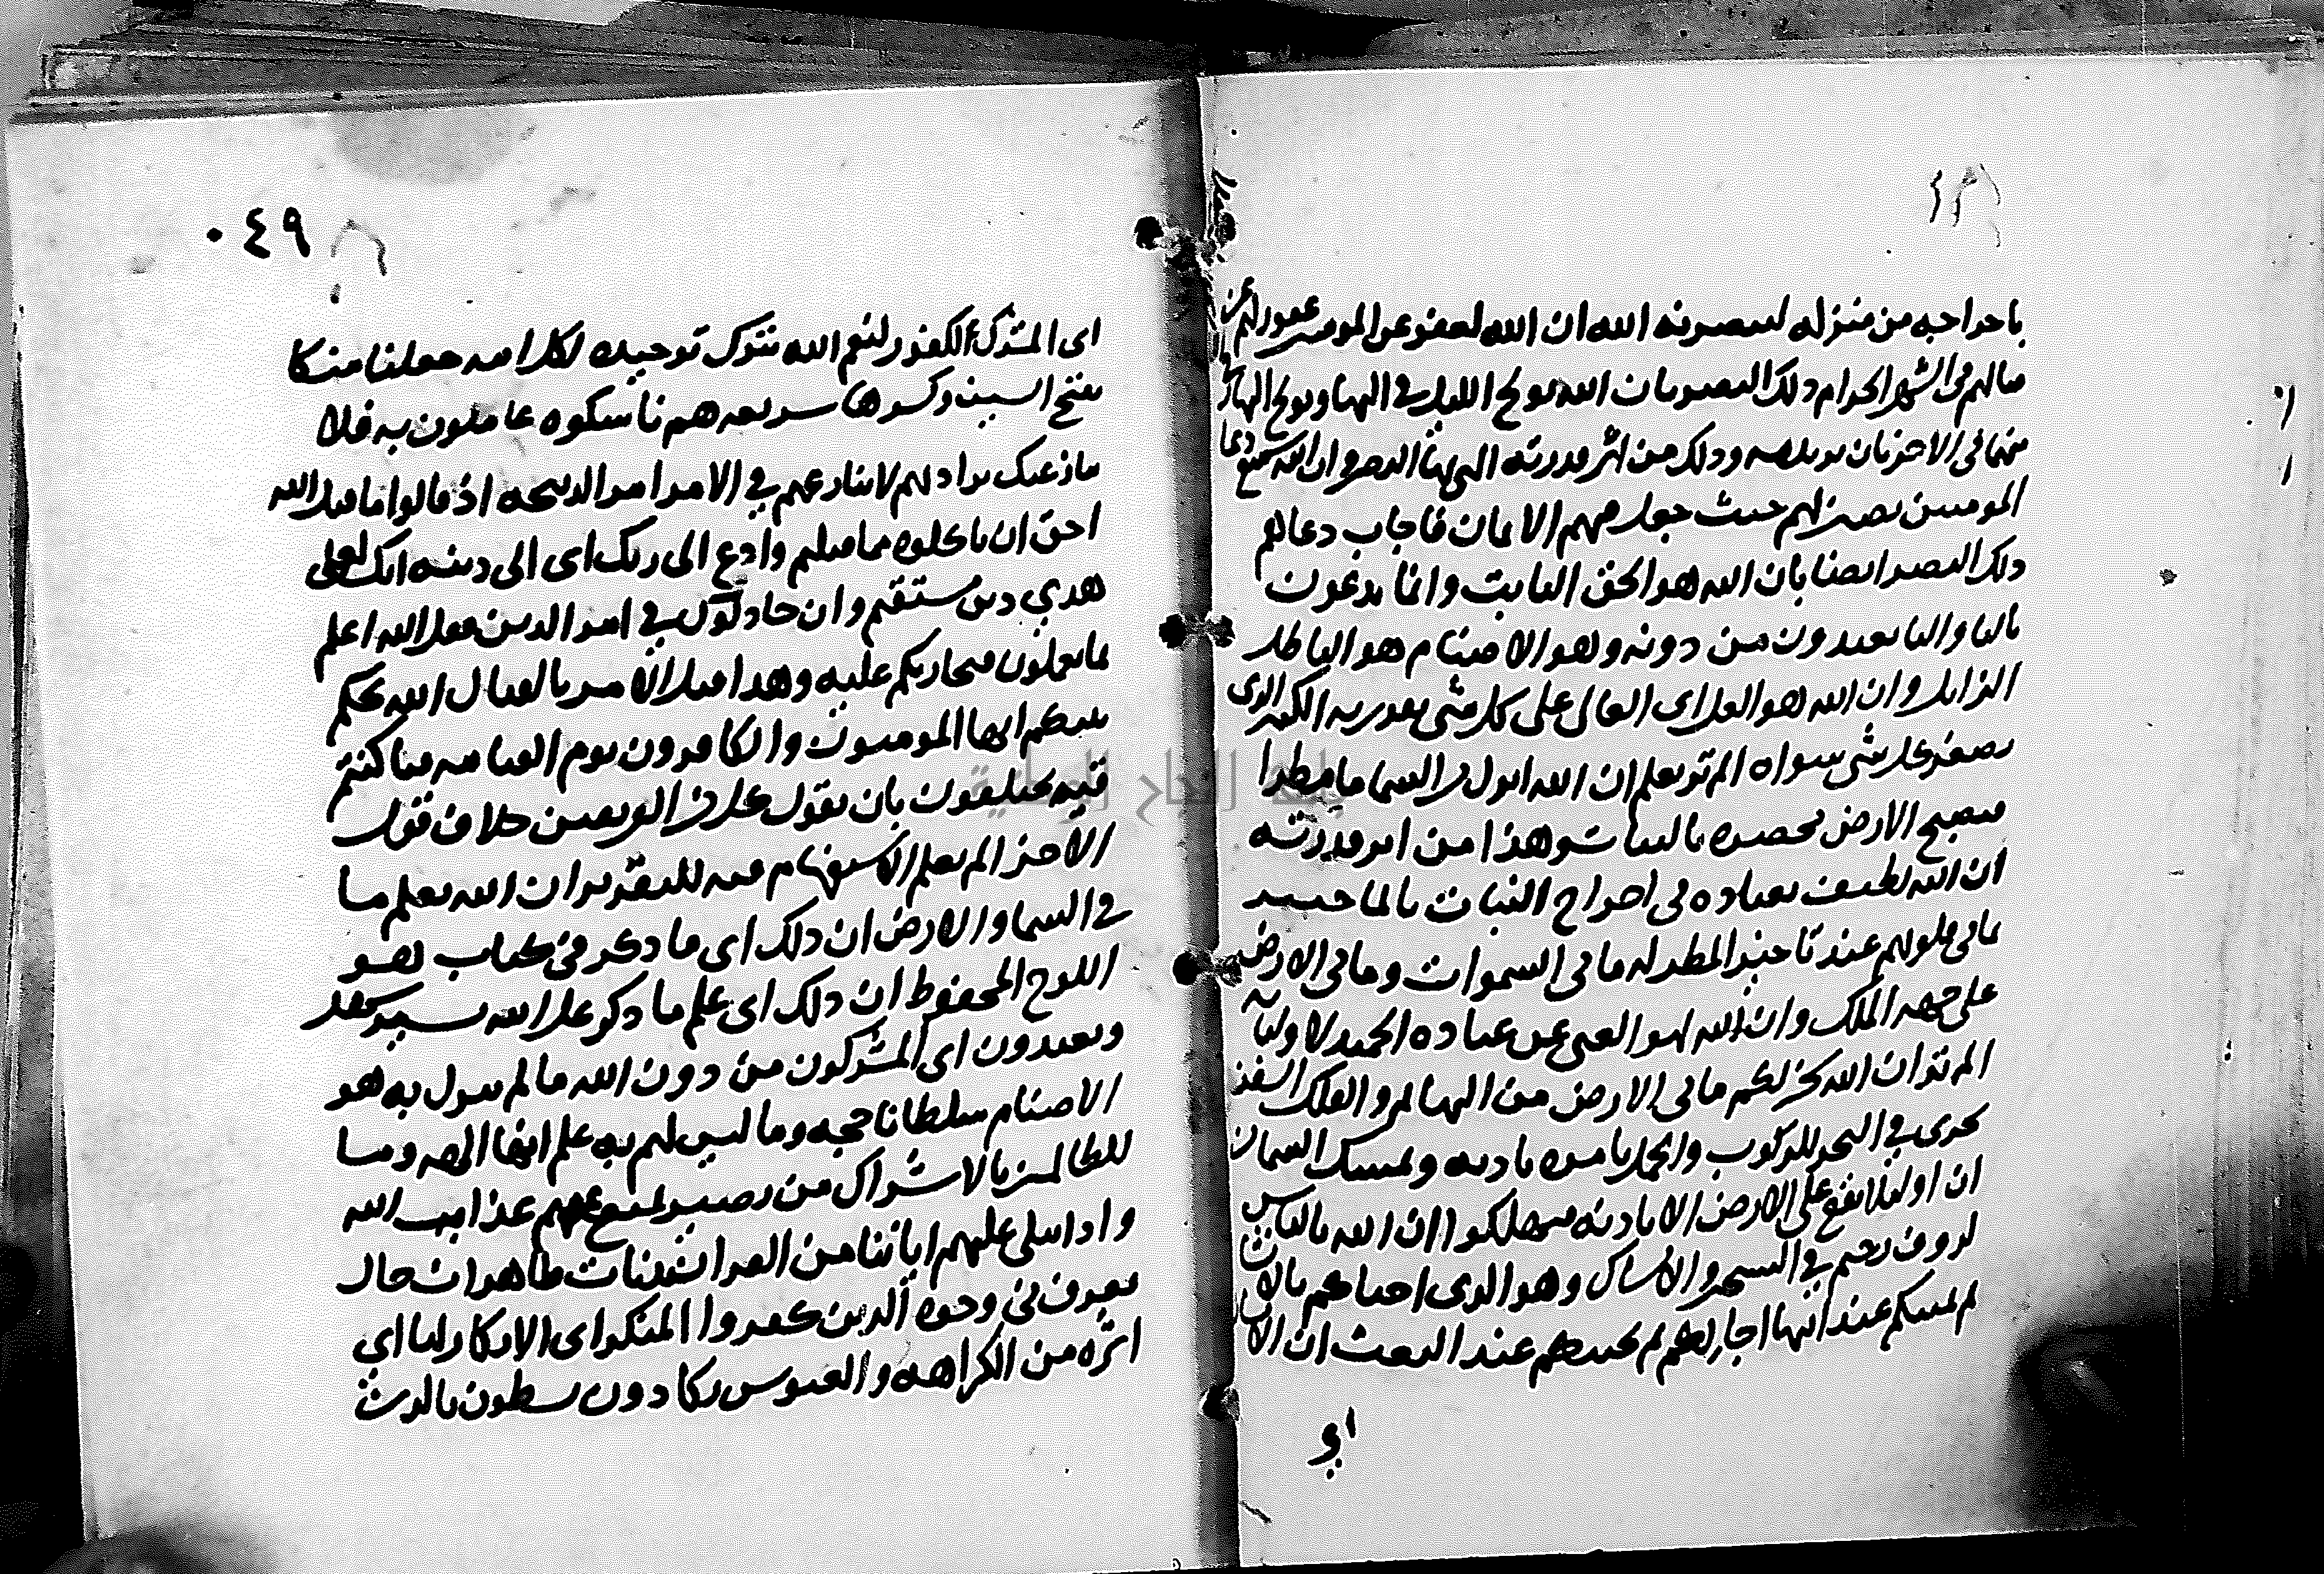 باخراجه من منزله لينصرنه الله ان الله لعفو عن المومنين غفور لهم عن
قتالهم في الشهر الحرام ذلك النصر بان الله يولج الليل في النهار ويولج النهار في
منهما في الاخر بان يزيد به وذلك من اثر قدرته التي بها النصر وان الله سميع دعا
المومنين بصير بهم حيث جعل فيهم الايمان فاجاب دعاهم
ذلك النصر ايضا بان الله هو الحق الثابت وانما يدعون
باليا والتا يعبدون من دونه وهو الاصنام هو الباطل
الزايل وان الله هو العلي اي العالي على كل شي بقدرته الكبير الذي
يصغر كل شي سواه الم تر تعلم ان الله انزل من السما ما مطرا
فتصبح الارض مخضرة بالنبات وهذا من اثر قدرته
ان الله لطيف بعباده في اخراج النبات بالما خبير
بما في قلوبهم عند تاخير المطر له ما في السموات وما في الارض
على جهة الملك وان الله لهو الغني عن عباده الحميد لاوليايه
الم تر ان الله سخر لكم ما في الارض من البهايم والفلك السفن
تجري في البحر للركوب والحمل بامره باذنه ويمسك السما من
ان او ليلا تقع على الارض الا باذنه فتهلكوا ان الله بالناس
لروف رحيم في التسخير والامساك وهو الذي احياكم بالانشا
ثم يميتكم عند انتها اجالكم ثم يحييكم عند البعث ان الانسان
اي
٠٤٩
اي المشرك لكفور لنعم الله بتركه توحيده لكل امة جعلنا منسكا
بفتح السين وكسرها شريعة هم ناسكوه عاملون به فلا
ينازعنك يراد به لا تنازعهم في الامر امر الذبيحة اذ قالوا ما قتل الله
احق ان تاكلوه مما قتلتم وادع الى ربك اي الى دينه انك لعلى
هدي دين مستقيم وان جادلوك في امر الدين فقل الله اعلم
بما تعملون فيجازيكم عليه وهذا قبل الامر بالقتال الله يحكم
بينكم ايها المومنون والكافرون يوم القيامة فيما كنتم
فيه تختلفون بان يقول كل من الفريقين خلاف قول
الاخر الم تعلم الاستفهام فيه للتقرير ان الله يعلم ما
في السما والارض ان ذلك اي ما ذكر في كتاب هو
اللوح المحفوظ ان ذلك اي علم ما ذكر على الله يسير سهل
ويعبدون اي المشركون من دون الله ما لم ينزل به هو
الاصنام سلطانا حجة وما ليس لهم به علم انها الهة وما
للظالمين بالاشراك من نصير يمنع عنهم عذاب الله
واذا تتلى عليهم اياتنا من القران بينات ظاهرات حال
تعرف في وجوه الذين كفروا المنكر اي الانكار لها اي
اثره من الكراهة والعبوس يكادون يسطون بالذين